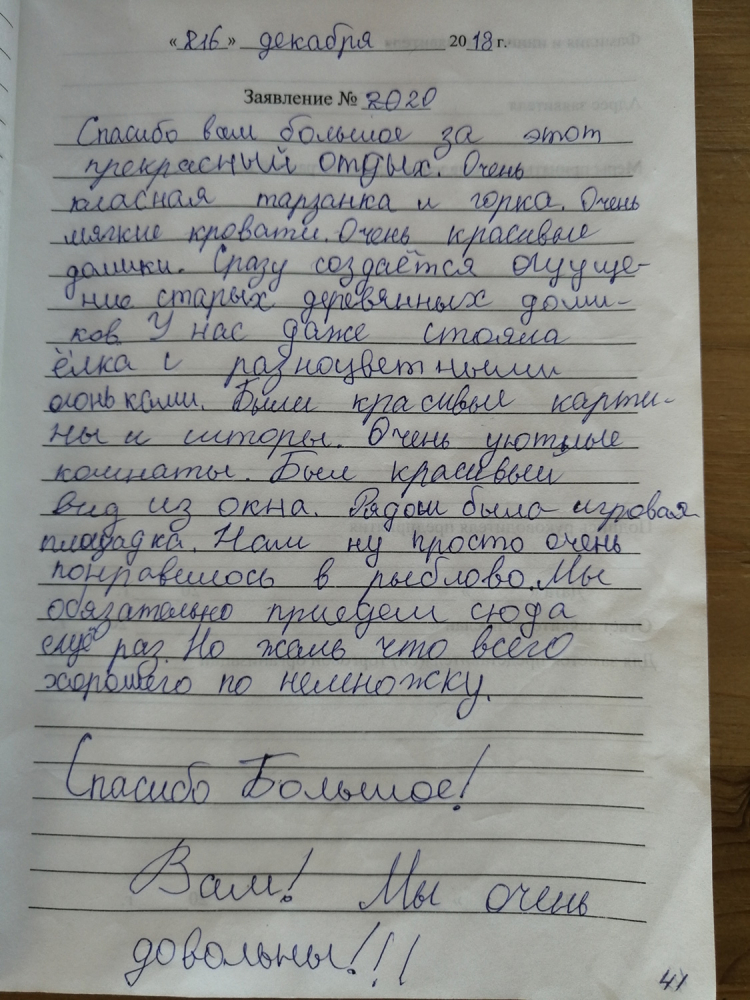 « 816 » декабря 2018 г.
Заявление № 2020
Спасибо вам большое за этот
прекрасный отдых. Очень
класная тарзанка и горка. Очень
мягкие кровати. Очень красивые
домики. Сразу создаётся ощуще-
ние старых деревянных доми-
ков. У нас даже стояла
ёлка с разноцветными
огоньками. Были красивые карти-
ны и шторы. Очень уютные
комнаты. Был красивый
вид из окна. Рядом была игровая
площадка. Нам ну просто очень
понравилось в рыблово. Мы
обязательно приедем сюда
ещё раз. Но жаль что всего
хорошего по немножку.
Спасибо Большое!
Вам! Мы очень
довольны!!!
41